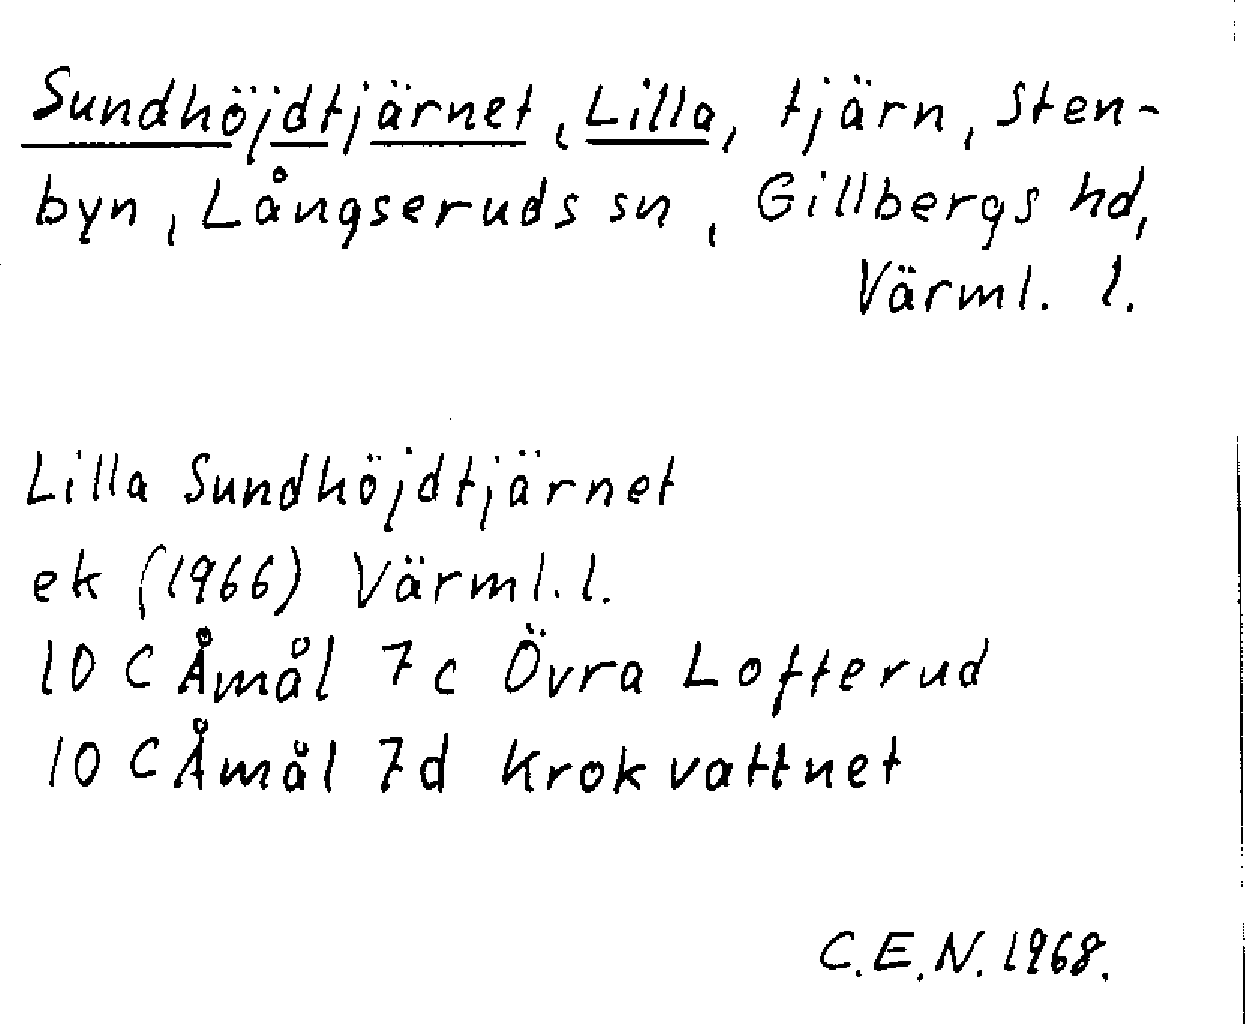 Sundhöjdtjärnet, Lilla, tjärn, Sten-
byn, Långseruds sn, Gillbergs hd,
Värml. l.
Lilla Sundhöjdtjärnet
ek (1966) Värml. l.
10 C Åmål 7c Övra Lofterud
10 C Åmål 7d Krokvattnet
C.E.N. 1968.